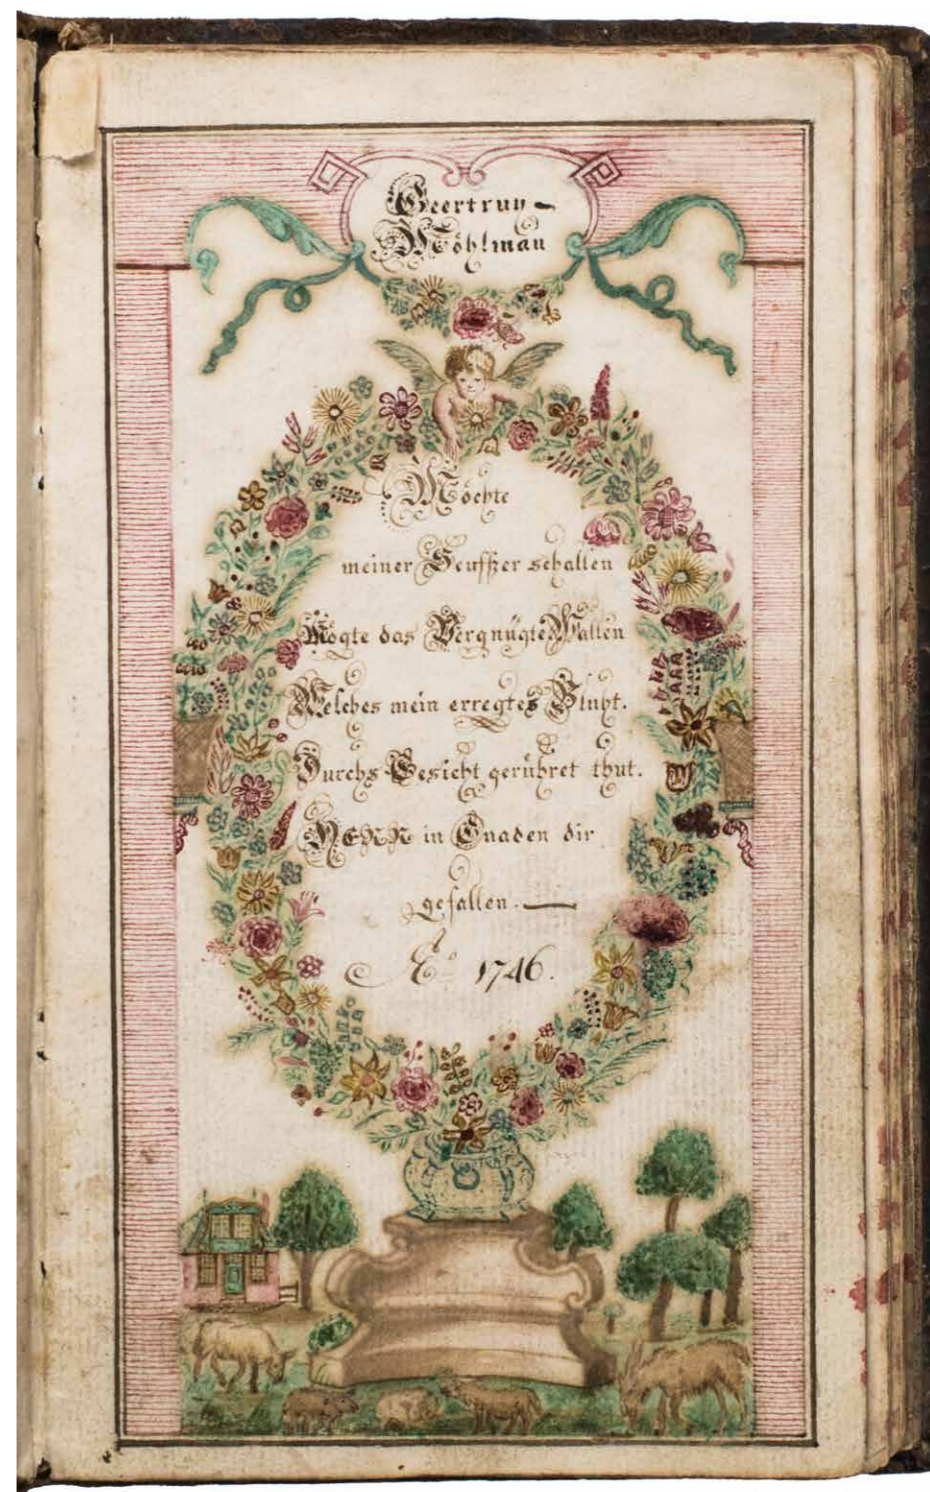 Geertruy
Möhlman
Möchte
meiner Seuffzer schallen
Mögte das Vergnügte Wallen
Welches mein erregtes Bluht.
Durchs Gesicht gerühret thut.
HERR in Gnaden dir
gefallen.
Aº 1746.